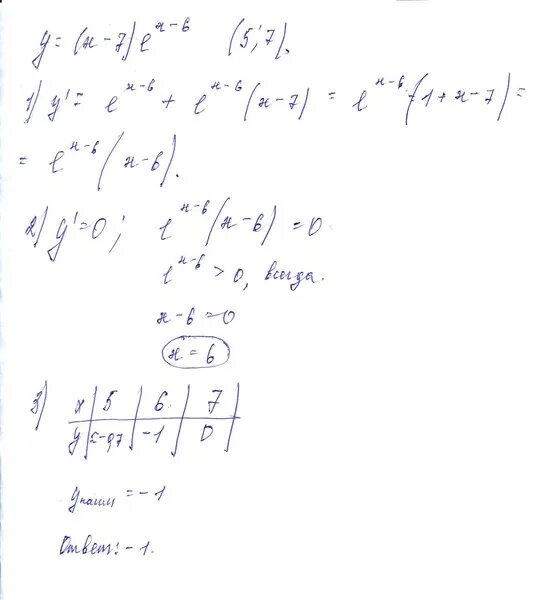 y = (x-7)e^{x-6} (5; 7).
1) y' = e^{x-6} + e^{x-6}(x-7) = e^{x-6}(1+x-7) =
= e^{x-6}(x-6).
2) y'=0; e^{x-6}(x-6) = 0
e^{x-6} > 0, всегда.
x-6=0
x = 6
3) x | 5 | 6 | 7
y | ≈-0,7 | -1 | 0
y наим = -1
Ответ: -1.